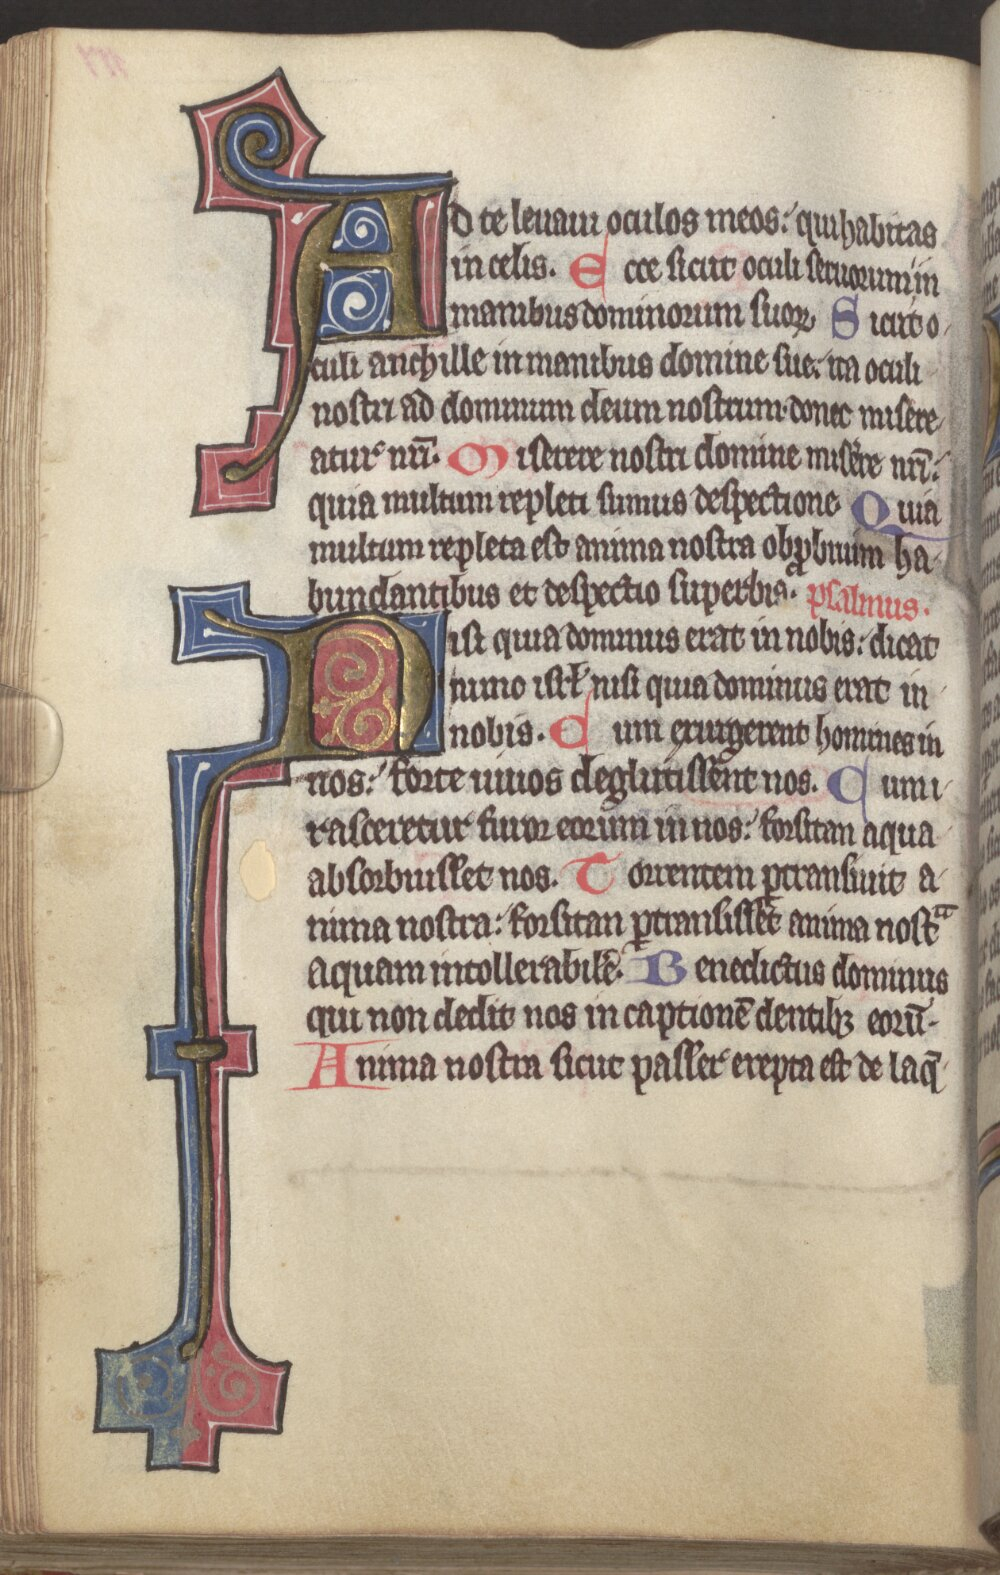 Ad te levavi oculos meos: qui habitas
in celis. Ecce sicut oculi servorum in
manibus dominorum suoꝝ Sicut o-
culi anchille in manibus domine sue: ita oculi
nostri ad dominum deum nostrum donec misere-
atur nrī. Miserere nostri domine misere nrī:
quia multum repleti sumus despectione Quia
multum repleta est anima nostra obꝓbrium ha-
bundantibus et despectio superbis. psalmus.
Nisi quia dominus erat in nobis: dicat
nunc isrł nisi quia dominus erat in
nobis. Cum exurgerent homines in
nos: forte vivos deglutissent nos. Cum i-
rasceretur furor eorum in nos: forsitan aqua
absorbuisset nos. Torrentem ꝑtransivit a-
nima nostra: forsitan ꝑtransisset anima nostᵃ
aquam intollerabilē. Benedictus dominus
qui non dedit nos in captionē dentibꝫ eorū.
Anima nostra sicut passer erepta est de laq̄-